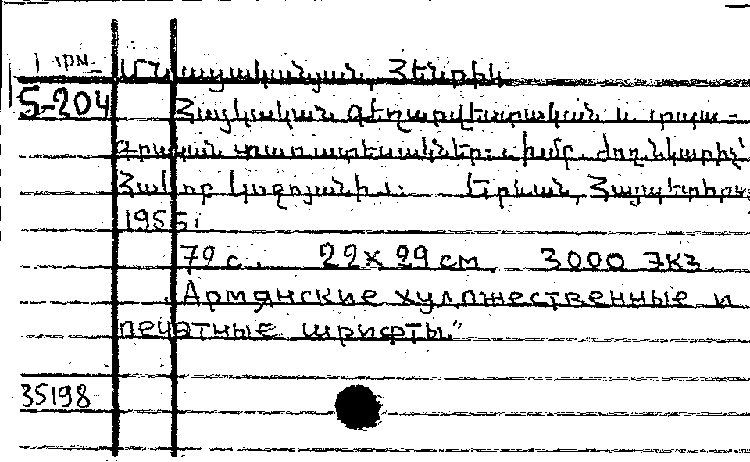 1 արմ.
Մնացականյան, Հենրիկ
Տ-204
Հայկական գեղարվեստական և տպա-
գրական տառատեսակներ: Խմբ. ժող. նկարիչ՝
Հակոբ Կոջոյանի: Երևան, Հայպետհրատ
1955
70 с. 22 x 29 см 3000 экз
„Армянские художественные и
печатные шрифты"
35198